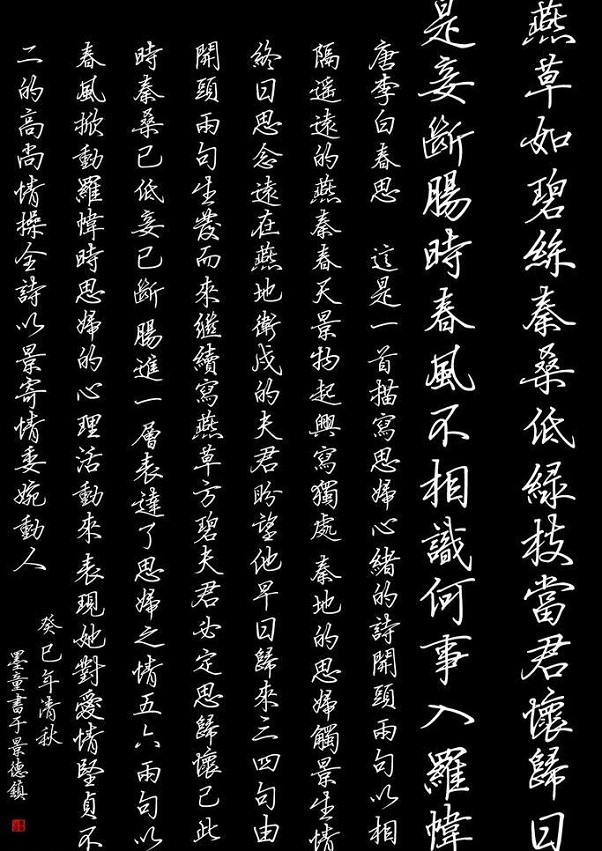 燕草如碧絲秦桑低綠枝當君懷歸日
是妾斷腸時春風不相識何事入羅幃
唐李白春思 這是一首描寫思婦心緒的詩開頭兩句以相
隔遥遠的燕秦春天景物起興寫獨處秦地的思婦觸景生情
終日思念遠在燕地衛戍的夫君盼望他早日歸來三四句由
開頭兩句生發而來繼續寫燕草方碧夫君必定思歸懷己此
時秦桑已低妾已斷腸進一層表達了思婦之情五六兩句以
春風掀動羅幃時思婦的心理活動來表現她對愛情堅貞不
二的高尚情操全詩以景寄情委婉動人
癸巳年清秋
墨童書于景德鎮